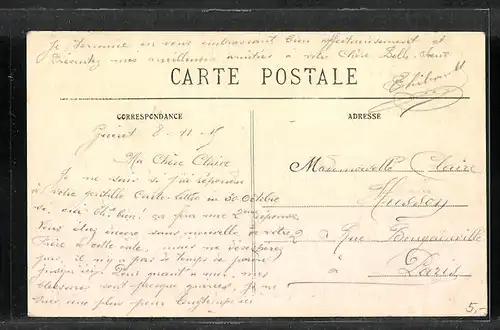 Je termine en vous embrassant bien affectueusement et
Présentez mes meilleures amitiés à votre Chère Belle-Soeur
CARTE POSTALE
CORRESPONDANCE
ADRESSE
Guéret 8-11-15
Ma Chère Claire
Je ne sais si j'ai répondu
à votre gentille Carte-lettre du 30 Octobre
si, oui Eh! bien! ça fera une 2ème réponse
Vous étiez encore sans nouvelle de votre
Frère à cette date, mais ne désespérez
pas, il n'y a pas de temps de perdu
jusqu'ici. Pour quant à moi, mes
blessures sont presque guéries, je ne
suis plus pour longtemps ici
Mademoiselle Claire
Husson
2 Rue Bougainville
à
Paris
5,-